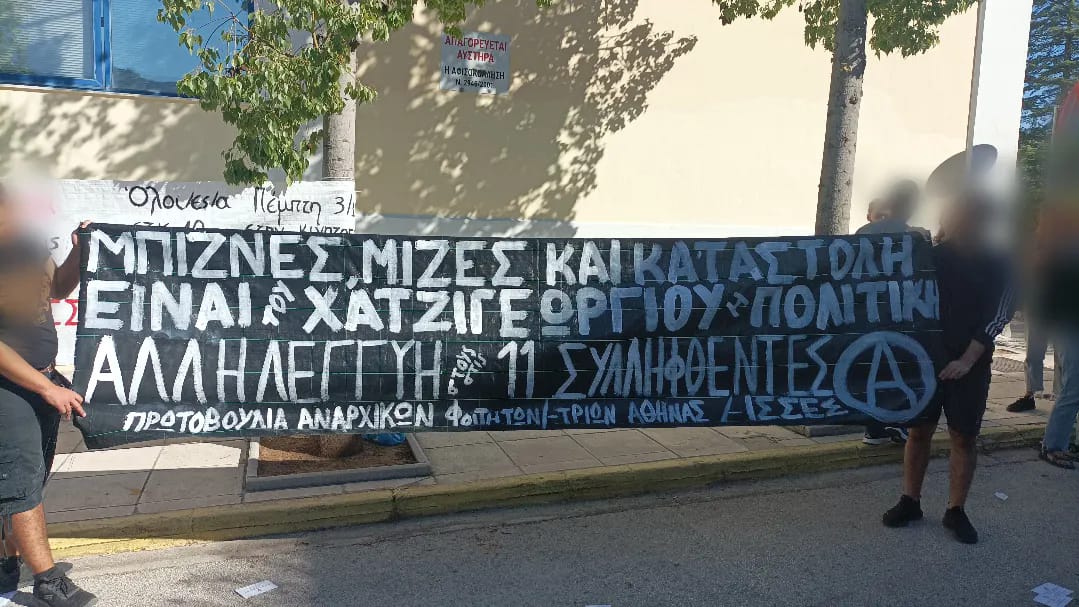 ΑΠΑΓΟΡΕΥΕΤΑΙ
ΑΥΣΤΗΡΑ
Η ΑΦΙΣΟΚΟΛΛΗΣΗ
Ν. 2946/2001
Ολονυσία Πέμπτη 3/1
ΜΠΙΖΝΕΣ, ΜΙΖΕΣ ΚΑΙ ΚΑΤΑΣΤΟΛΗ
ΕΙΝΑΙ ΤΟΥ ΧΑΤΖΙΓΕΩΡΓΙΟΥ Η ΠΟΛΙΤΙΚΗ
ΑΛΛΗΛΕΓΓΥΗ ΣΤΟΥΣ ΣΤΙΣ 11 ΣΥΛΛΗΦΘΕΝΤΕΣ
ΠΡΩΤΟΒΟΥΛΙΑ ΑΝΑΡΧΙΚΩΝ ΦΟΙΤΗΤΩΝ/-ΤΡΙΩΝ ΑΘΗΝΑΣ/-ΙΣΣΕΣ